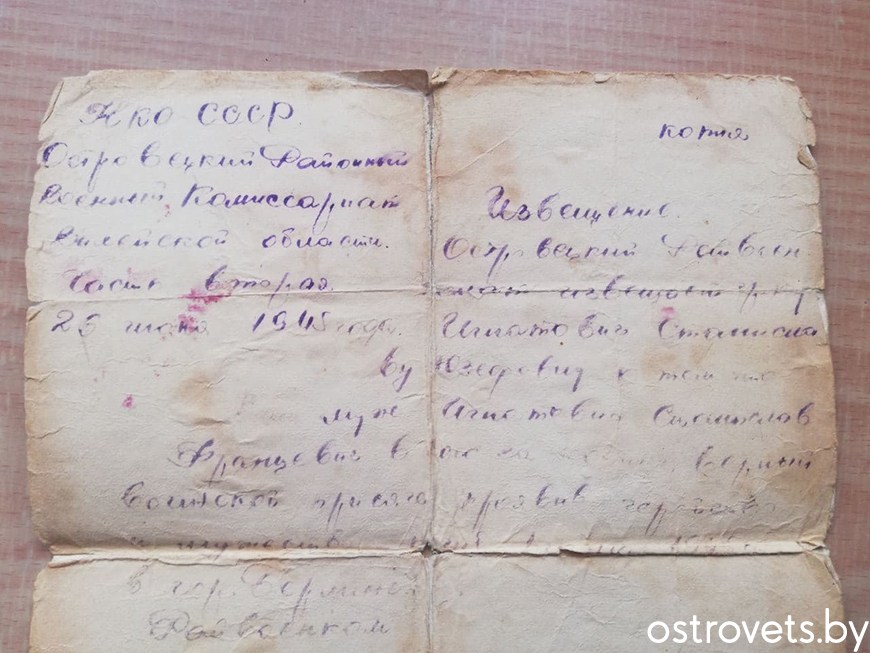 Нко СССР.
Островецкий Районный
Военный Комиссариат
Вилейской области.
Часть вторая.
26 1945 года.
копия
Извещение.
Островецкий Райвоен
комат извещает гр-ку
Игнатович Станисла
ву Юзефовну к том что
муж Игнатович Станислав
Францевич в бою за верный
воинской присяге проявив геройство
и мужество
в гор. Берлине
Райвоенком
ostrovets.by